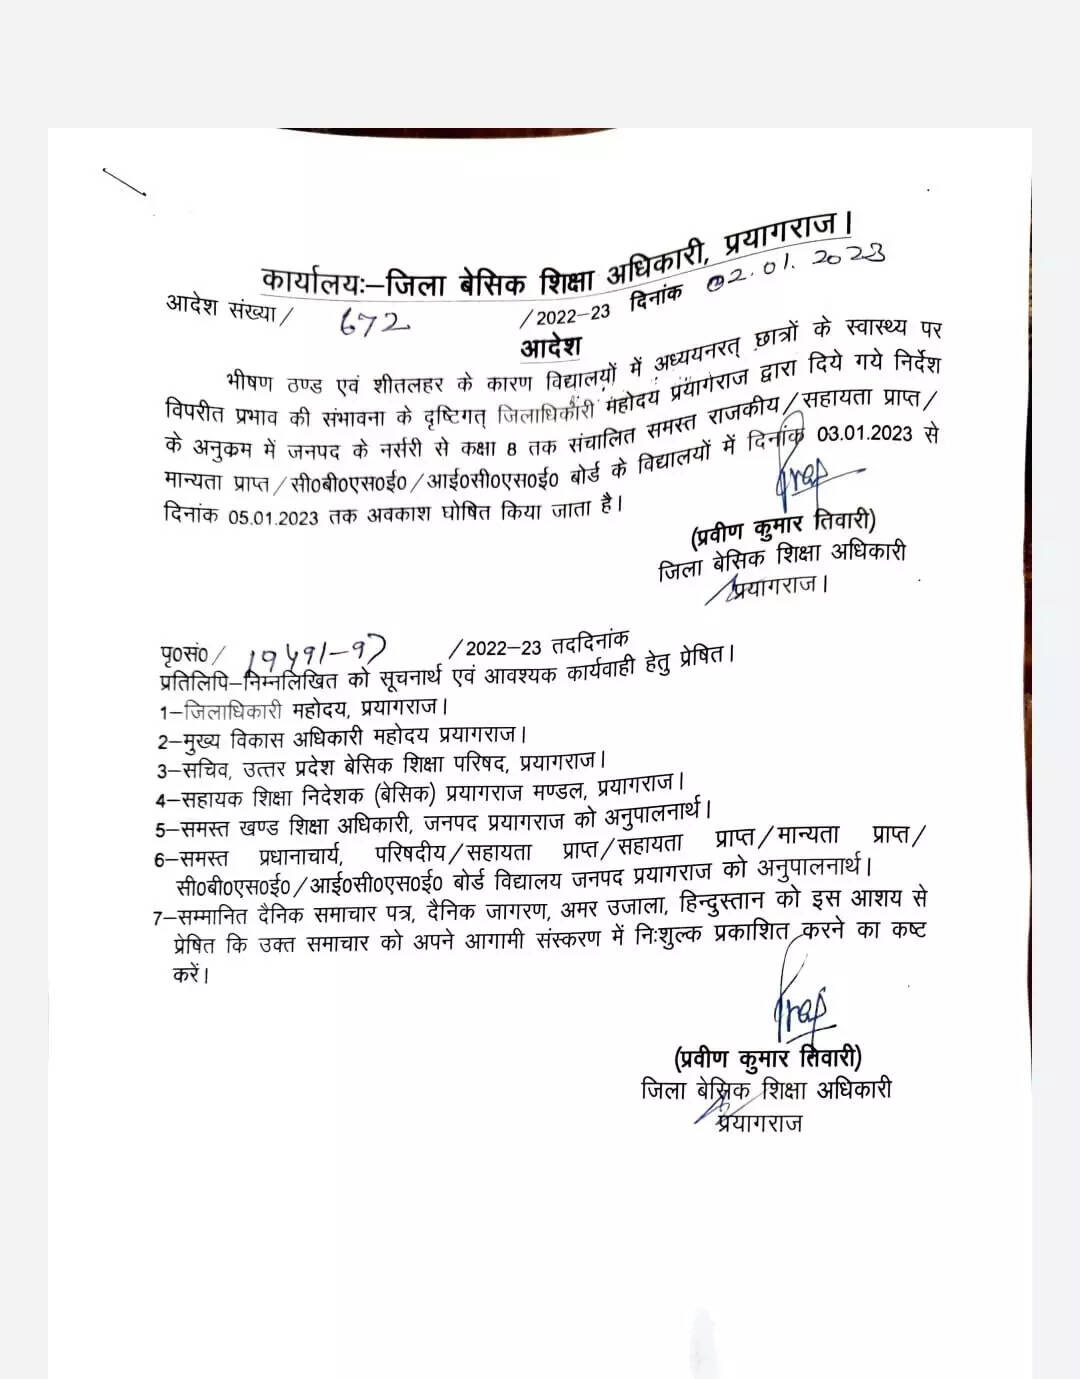 कार्यालयः–जिला बेसिक शिक्षा अधिकारी, प्रयागराज।
आदेश संख्या/ 672 /2022–23 दिनांक 02.01.2023
आदेश
भीषण ठण्ड एवं शीतलहर के कारण विद्यालयों में अध्ययनरत् छात्रों के स्वास्थ्य पर
विपरीत प्रभाव की संभावना के दृष्टिगत् जिलाधिकारी महोदय प्रयागराज द्वारा दिये गये निर्देश
के अनुक्रम में जनपद के नर्सरी से कक्षा 8 तक संचालित समस्त राजकीय/सहायता प्राप्त/
मान्यता प्राप्त/सी0बी0एस0ई0/आई0सी0एस0ई0 बोर्ड के विद्यालयों में दिनांक 03.01.2023 से
दिनांक 05.01.2023 तक अवकाश घोषित किया जाता है।
(प्रवीण कुमार तिवारी)
जिला बेसिक शिक्षा अधिकारी
प्रयागराज।
पृ0सं0/ /2022–23 तददिनांक
प्रतिलिपि–निम्नलिखित को सूचनार्थ एवं आवश्यक कार्यवाही हेतु प्रेषित।
1–जिलाधिकारी महोदय, प्रयागराज।
2–मुख्य विकास अधिकारी महोदय प्रयागराज।
3–सचिव, उत्तर प्रदेश बेसिक शिक्षा परिषद, प्रयागराज।
4–सहायक शिक्षा निदेशक (बेसिक) प्रयागराज मण्डल, प्रयागराज।
5–समस्त खण्ड शिक्षा अधिकारी, जनपद प्रयागराज को अनुपालनार्थ।
6–समस्त प्रधानाचार्य, परिषदीय/सहायता प्राप्त/सहायता प्राप्त/मान्यता प्राप्त/
सी0बी0एस0ई0/आई0सी0एस0ई0 बोर्ड विद्यालय जनपद प्रयागराज को अनुपालनार्थ।
7–सम्मानित दैनिक समाचार पत्र, दैनिक जागरण, अमर उजाला, हिन्दुस्तान को इस आशय से
प्रेषित कि उक्त समाचार को अपने आगामी संस्करण में निःशुल्क प्रकाशित करने का कष्ट
करें।
(प्रवीण कुमार तिवारी)
जिला बेसिक शिक्षा अधिकारी
प्रयागराज